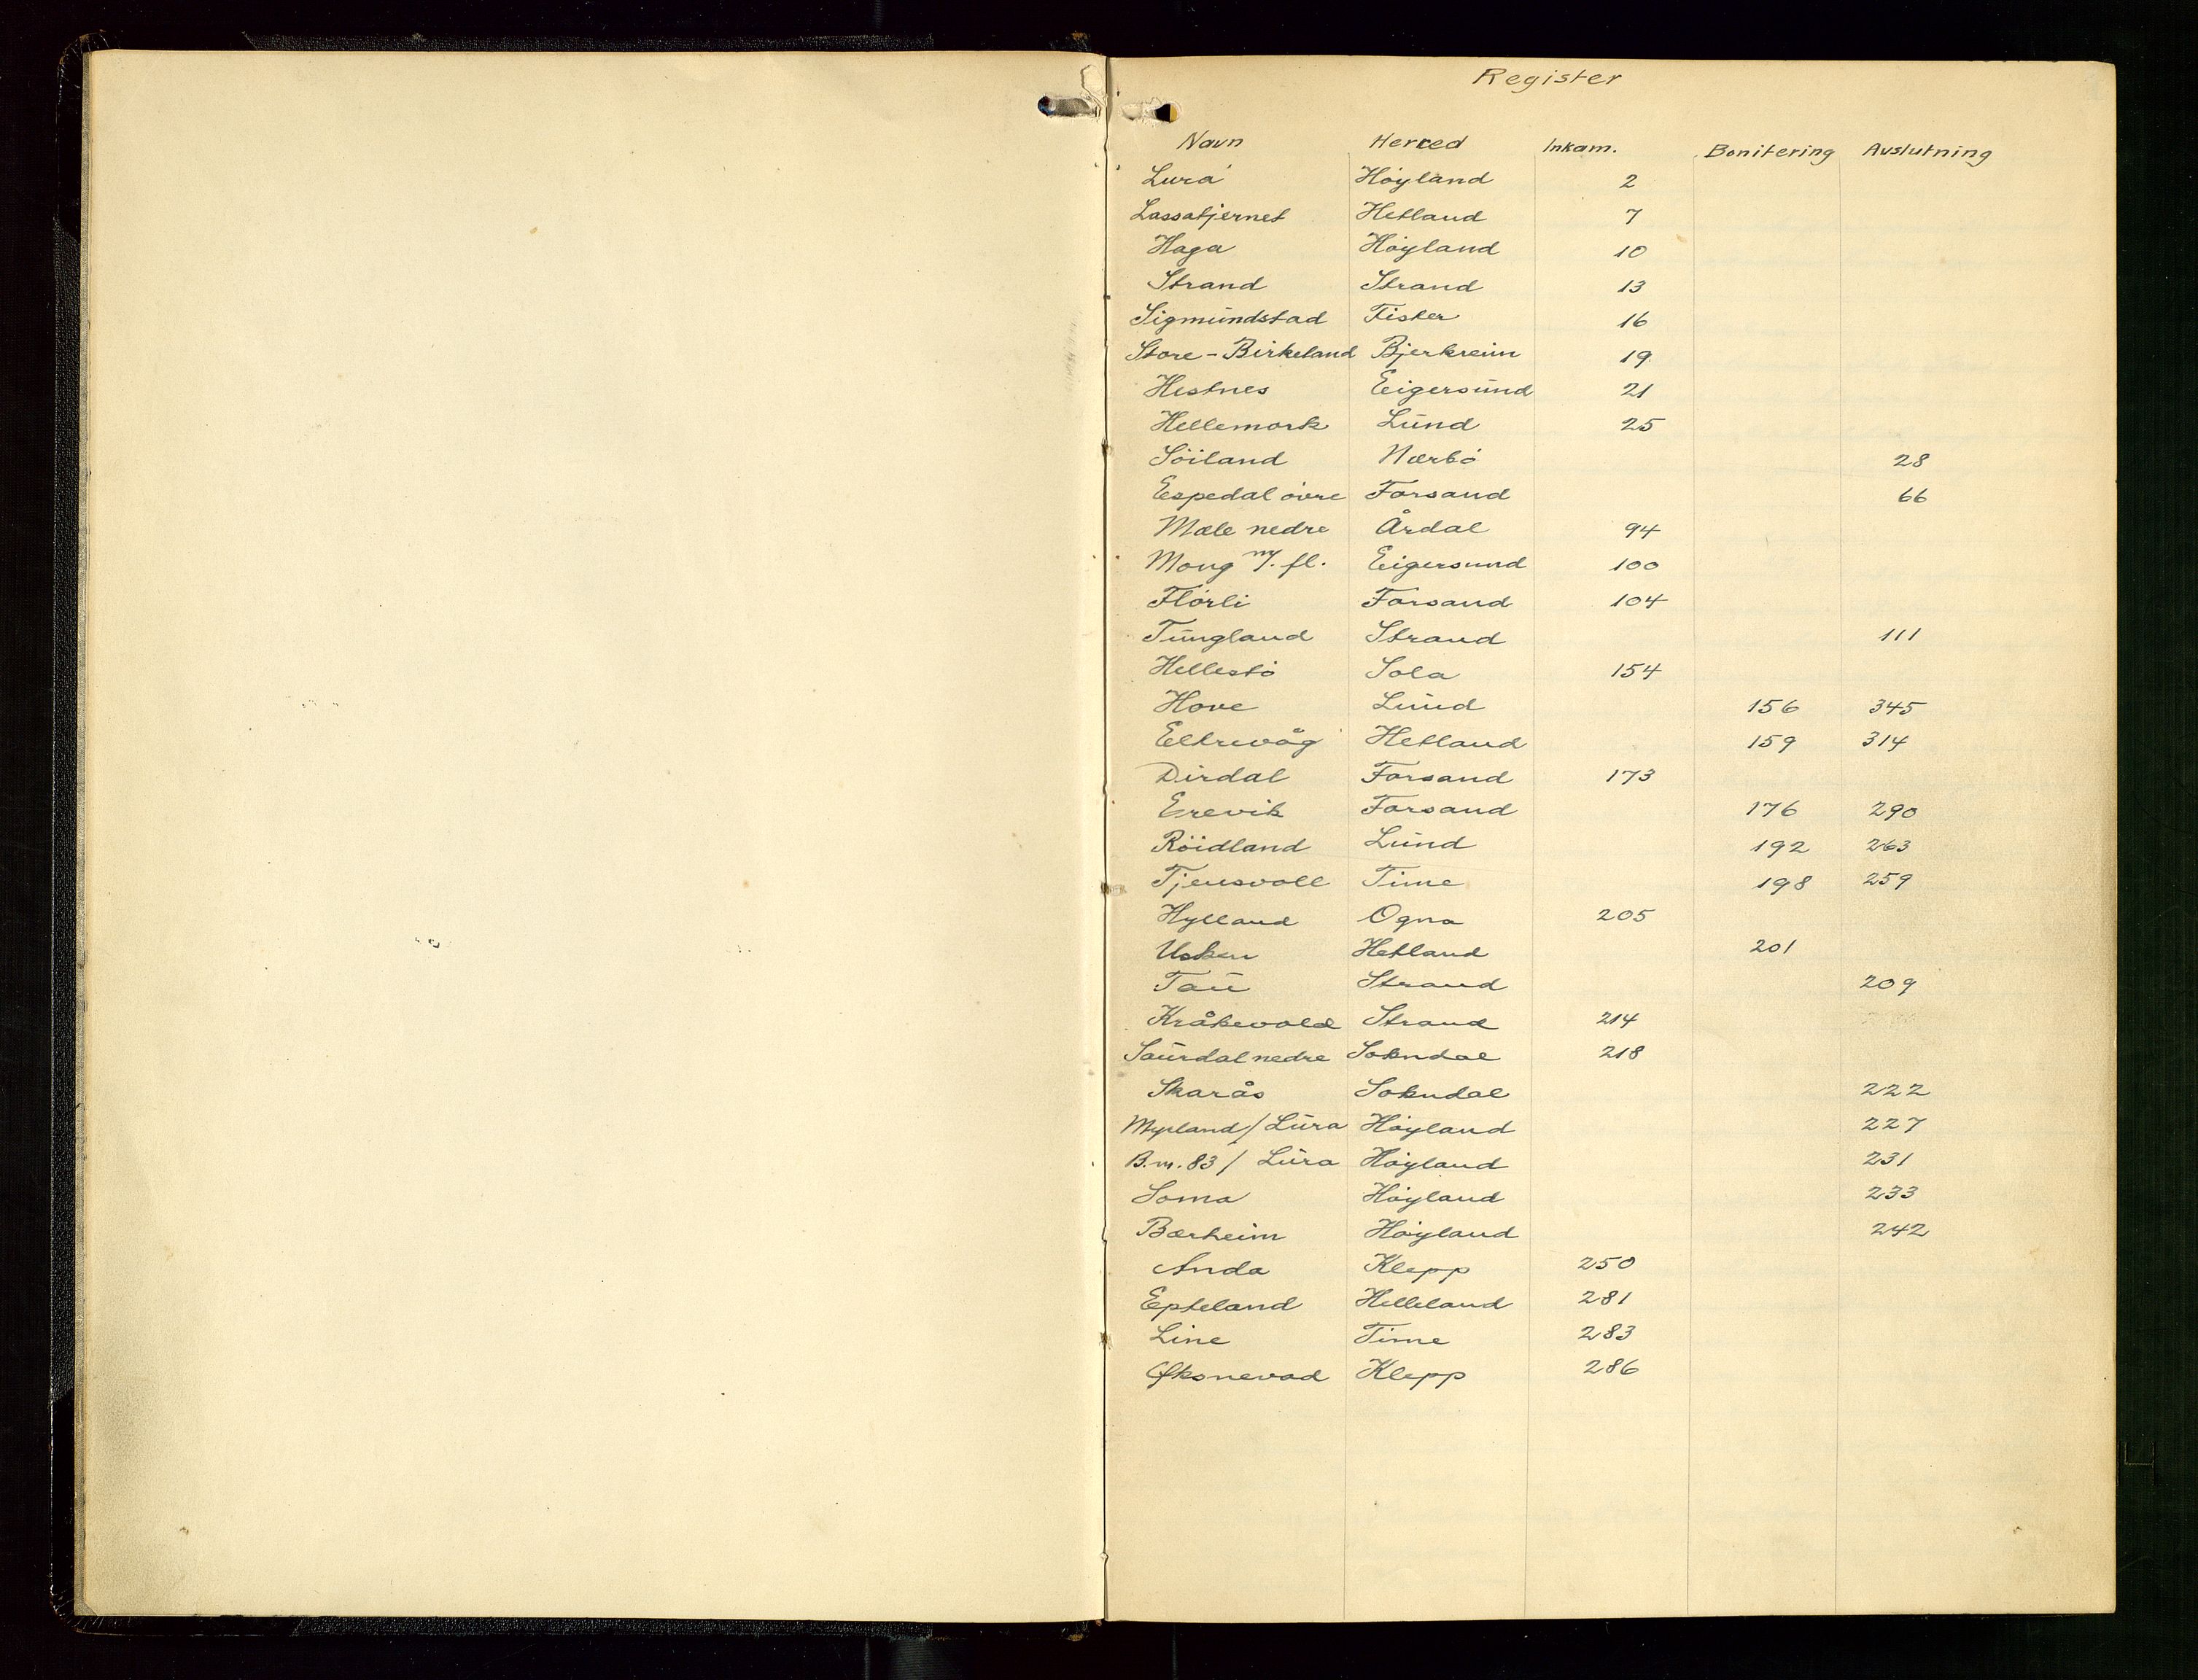 Register
Navn Herred Inkam. Bonitering Avslutning
Lura Høyland 2
Lassatjernet Hetland 7
Haga Høyland 10
Strand Strand 13
Sigmundstad Fister 16
Store-Birkeland Bjerkreim 19
Hestnes Eigersund 21
Hellemork Lund 25
Söiland Nærbø 28
Espedal øvre Forsand 66
Mæle nedre Årdal 94
Mong m/. fl. Eigersund 100
Flörli Forsand 104
Tungland Strand 111
Hellestö Sola 154
Hove Lund 156 345
Eltrevåg Hetland 159 314
Dirdal Forsand 173
Erevik Forsand 176 290
Röidland Lund 192 263
Tjensvoll Time 198 259
Hylland Ogna 205
Usken Hetland 201
Tau Strand 209
Kråkevold Strand 214
Saurdal nedre Sokndal 218
Skarås Sokndal 222
Myrland/Lura Høyland 227
B.m. 83/ Lura Høyland 231
Soma Høyland 233
Bærheim Høyland 242
Anda Klepp 250
Epteland Helleland 281
Line Time 283
Øksnevad Klepp 286